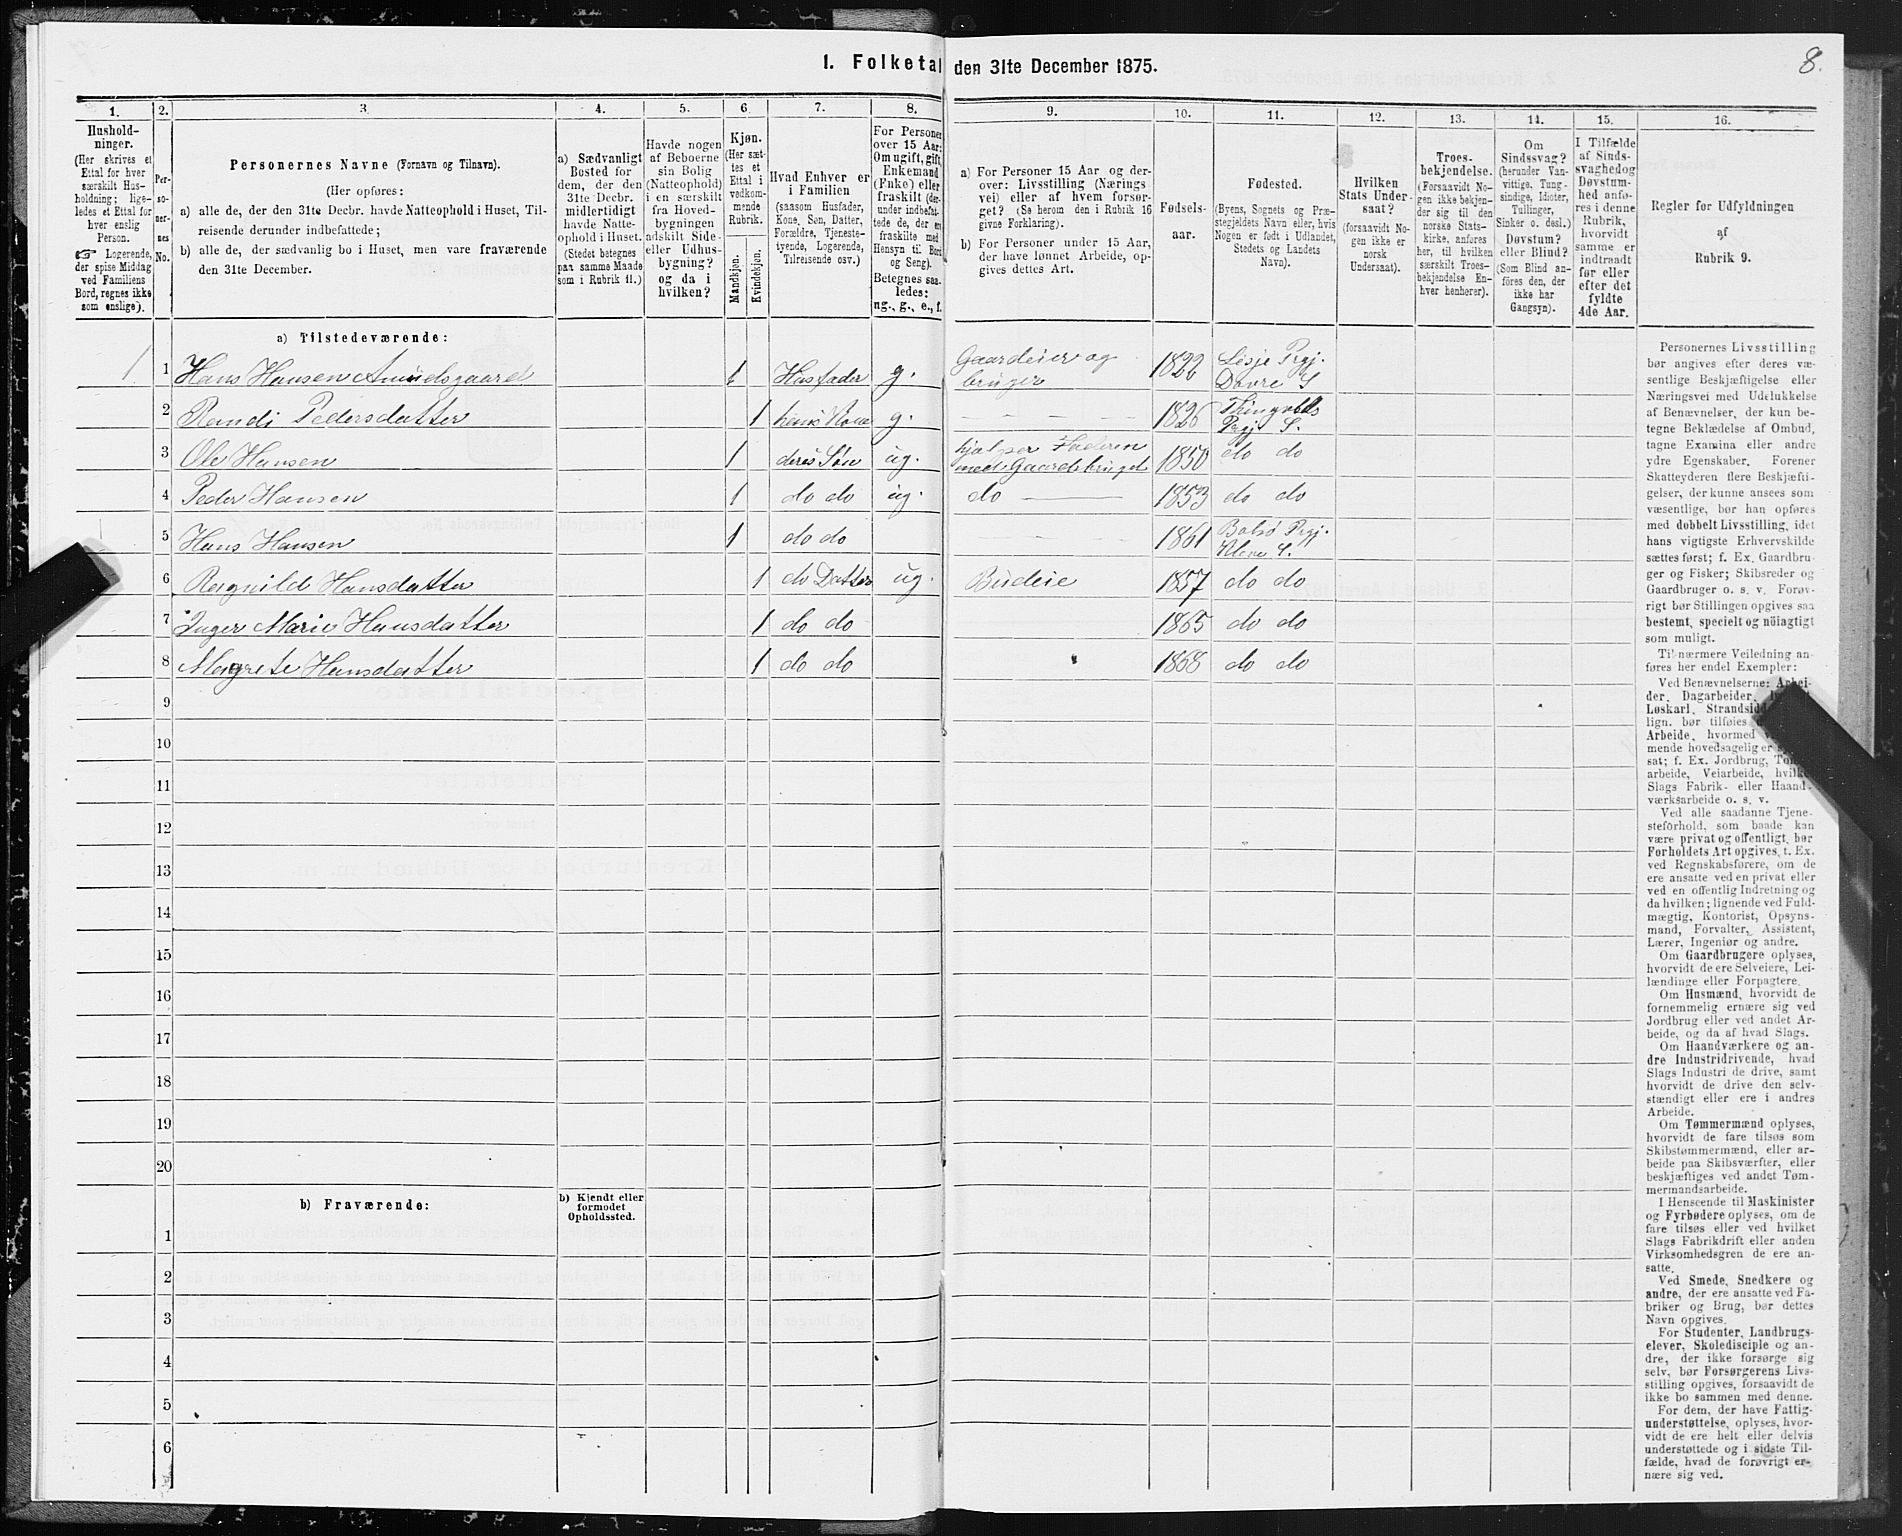 8.
1. Folketal den 31te December 1875.
1.
2.
3.
4.
5.
6.
7.
8.
9.
10.
11.
12.
13.
14.
15.
16.
Hushold-
ninger.
(Her skrives et
Ettal for hver
særskilt Hus-
holdning; lige-
ledes et Ettal for
hver enslig
Person.
☞ Logerende,
der spise Middag
ved Familiens
Bord, regnes ikke
som enslige).
Per-
so-
ner-
nes
No.
Personernes Navne (Fornavn og Tilnavn).
(Her opføres:
a) alle de, der den 31te Decbr. havde Natteophold i Huset, Til-
reisende derunder indbefattede;
b) alle de, der sædvanlig bo i Huset, men vare fraværende
den 31te December.
a) Sædvanligt
Bosted for
dem, der den
31te Decbr.
midlertidigt
havde Natte-
ophold i Huset.
(Stedet betegnes
paa samme Maade
som i Rubrik 11.)
Havde nogen
af Beboerne
sin Bolig
(Natteophold)
i en særskilt
fra Hoved-
bygningen
adskilt Side-
eller Udhus-
bygning?
og da i
hvilken?
Kjøn.
(Her sæt-
tes et
Ettal i
vedkom-
mende
Rubrik.
Mandkjøn.
Kvindekjøn.
Hvad Enhver er
i Familien
(saasom Husfader,
Kone, Søn, Datter,
Forældre, Tjeneste-
tyende, Logerende,
Tilreisende osv.)
For Personer
over 15 Aar:
Om ugift, gift,
Enkemand
(Enke) eller
fraskilt (der-
under indbefat-
tede de, der ere
fraskilte med
Hensyn til Bord
og Seng).
Betegnes saa-
ledes:
ug., g., e., f.
a) For Personer 15 Aar og der-
over: Livsstilling (Nærings-
vei) eller af hvem forsør-
get? (Se herom den i Rubrik 16
givne Forklaring).
b) For Personer under 15 Aar,
der have lønnet Arbeide, op-
gives dettes Art.
Fødsels-
aar.
Fødested.
(Byens, Sognets og Præ-
stegjeldets Navn eller, hvis
Nogen er født i Udlandet,
Stedets og Landets
Navn).
Hvilken
Stats Under-
saat?
(forsaavidt No-
gen ikke er
norsk
Undersaat).
Troes-
bekjendelse.
(Forsaavidt No-
gen ikke bekjen-
der sig til den
norske Stats-
kirke, anføres
her, til hvilken
særskilt Troes-
bekjendelse En-
hver henhører).
Om
Sindssvag?
(herunder Van-
vittige, Tung-
sindige, Idioter,
Tullinger,
Sinker o. desl.)
Døvstum?
eller Blind?
(Som Blind an-
føres den, der
ikke har
Gangsyn).
I Tilfælde
af Sinds-
svaghed og
Døvstum-
hed anfø-
res i denne
Rubrik,
hvorvidt
samme er
indtraadt
før eller
efter det
fyldte
4de Aar.
Regler for Udfyldningen
af
Rubrik 9.
a) Tilstedeværende:
1 1 Hans Hansen Amundsgaard 1 Husfader g. Gaardeier og bruger 1822 Lesje Prgj. Dovre S
2 Randi Pedersdatter 1 hans Kone g. 1826 Thingvolds Prgj S.
3 Ole Hansen 1 deres Søn ug. hjælper Faderen med Gaardsbruget 1850 do do
4 Peder Hansen 1 do do ug. do 1853 do do
5 Hans Hansen 1 do do 1861 Bolsø Prgj. Kleve S.
6 Ragnild Hansdatter 1 do Datter ug. Budeie 1857 do do
7 Inger Marie Hansdatter 1 do do 1865 do do
8 Magrete Hansdatter 1 do do 1868 do do
9
10
11
12
13
14
15
16
17
18
19
20
b) Fraværende:
b) Kjendt eller
formodet
Opholdssted.
1
2
3
4
5
6
Personernes Livsstilling
bør angives efter deres væ-
sentlige Beskjæftigelse eller
Næringsvei med Udelukkelse
af Benævnelser, der kun be-
tegne Beklædelse af Ombud,
tagne Examina eller andre
ydre Egenskaber. Forener
Skatteyderen flere Beskjæfti-
gelser, der kunne ansees som
væsentlige, bør han opføres
med dobbelt Livsstilling, idet
hans vigtigste Erhvervskilde
sættes først; f. Ex. Gaardbru-
ger og Fisker; Skibsreder og
Gaardbruger o. s. v. Forøv-
rigt bør Stillingen opgives saa
bestemt, specielt og nöiagtigt
som muligt.
Til nærmere Veiledning an-
føres her endel Exempler:
Ved Benævnelserne: Arbei-
der, Dagarbeider,
Løskarl, Strandsid
lign. bør tilføies
Arbeide, hvormed
mende hovedsagelig er
sat; f. Ex. Jordbrug,
arbeide, Veiarbeide, hvilket
Slags Fabrik- eller Haand-
værksarbeide o. s. v.
Ved alle saadanne Tjene-
steforhold, som baade kan
være privat og offentligt, bør
Forholdets Art opgives, t. Ex.
ved Regnskabsførere, om de
ere ansatte ved en privat eller
ved en offentlig Indretning og
da hvilken; lignende ved Fuld-
mægtig, Kontorist, Opsyns-
mand, Forvalter, Assistent,
Lærer, Ingeniør og andre.
Om Gaardbrugere oplyses,
hvorvidt de ere Selveiere, Lei-
lændinge eller Forpagtere.
Om Husmænd, hvorvidt de
fornemmelig ernære sig ved
Jordbrug eller ved andet Ar-
beide, og da af hvad Slags.
Om Haandværkere og an-
dre Industridrivende, hvad
Slags Industri de drive, samt
hvorvidt de drive den selv-
stændigt eller ere i andres
Arbeide.
Om Tømmermænd oplyses,
hvorvidt de fare tilsøs som
Skibstømmermænd, eller ar-
beide paa Skibsværfter, eller
beskjæftiges ved andet Tøm-
mermandsarbeide.
I Henseende til Maskinister
og Fyrbødere oplyses, om de
fare tilsøs eller ved hvilket
Slags Fabrikdrift eller anden
Virksomhedsgren de ere an-
satte.
Ved Smede, Snedkere og
andre, der ere ansatte ved Fa-
briker og Brug, bør dettes
Navn opgives.
For Studenter, Landbrugs-
elever, Skoledisciple og an-
dre, der ikke forsørge sig
selv, bør Forsørgerens Livs-
stilling opgives, forsaavidt de
ikke bo sammen med denne.
For dem, der have Fattig-
understøttelse, oplyses, hvor-
vidt de ere helt eller delvis
understøttede og i sidste Til-
fælde, hvad de forøvrigt er-
nære sig ved.